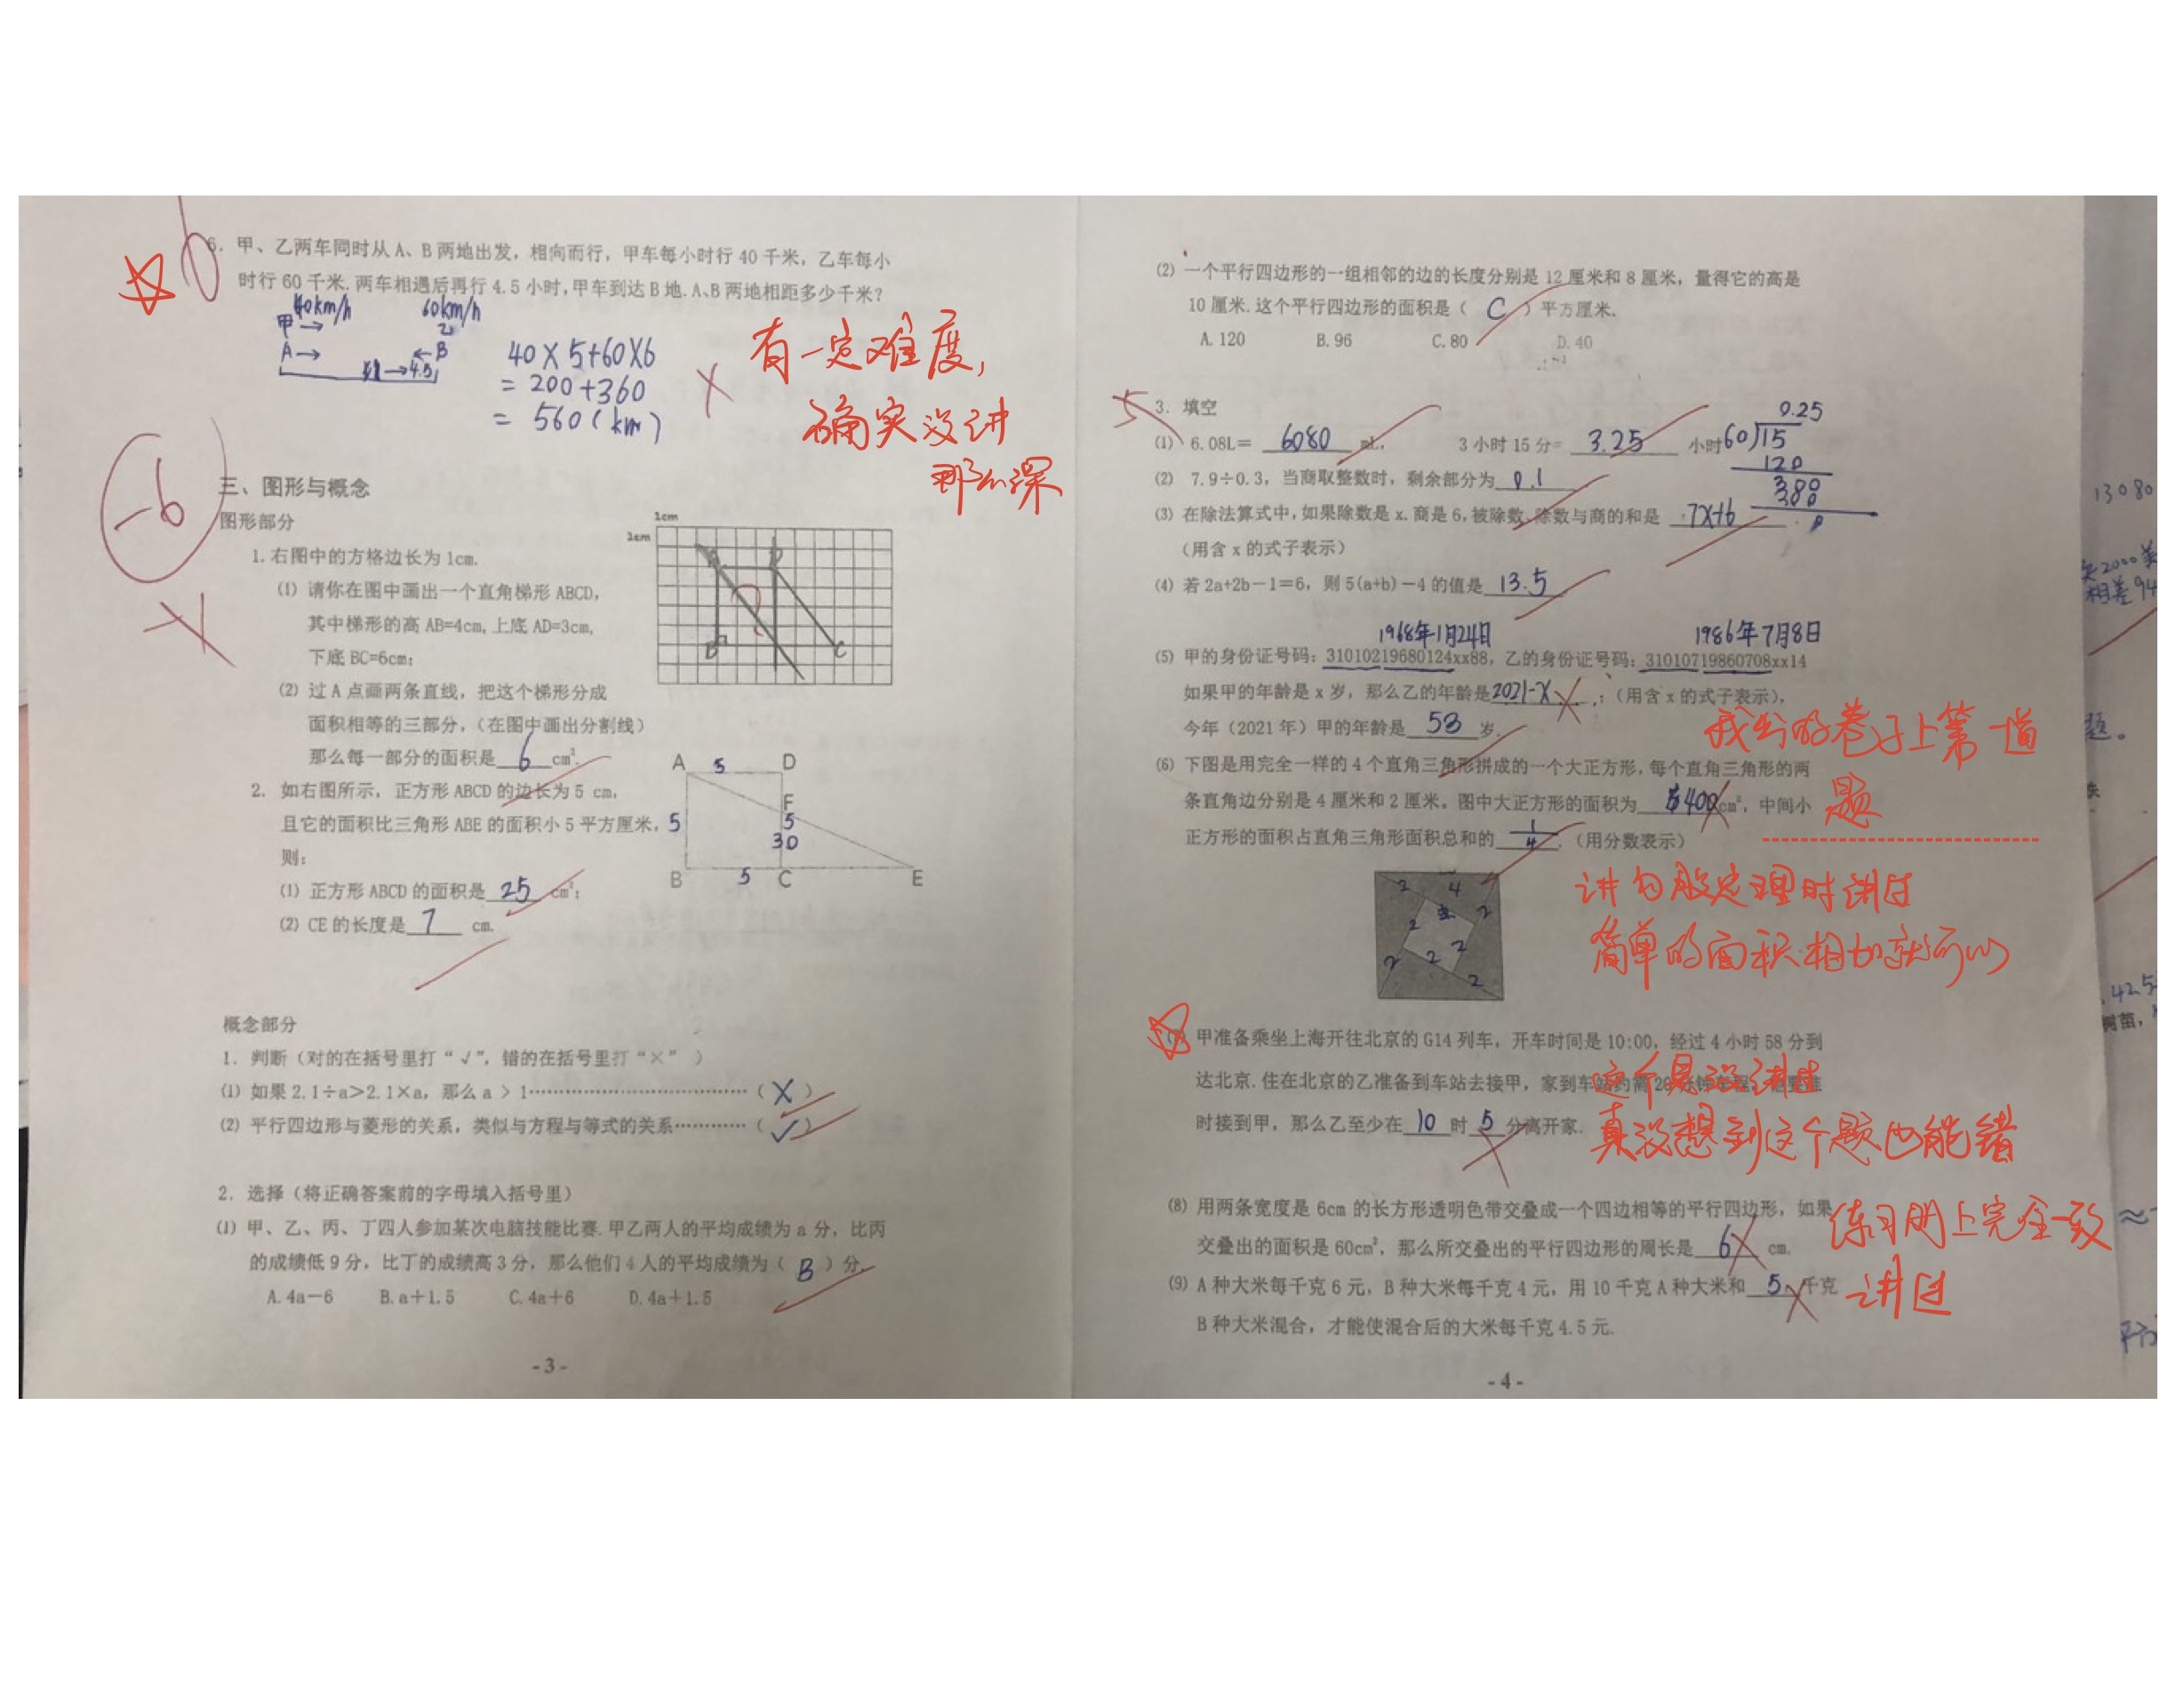 6. 甲、乙两车同时从 A、B 两地出发，相向而行，甲车每小时行 40 千米，乙车每小
时行 60 千米. 两车相遇后再行 4.5 小时, 甲车到达 B 地. A、B 两地相距多少千米?
40km/h 60km/h
甲→ 乙
A→ ←B
→4.5
40×5+60×6
= 200+360
= 560(km)
有一定难度,
确实没讲
那么深
-6
三、图形与概念
图形部分
1cm
1cm
1. 右图中的方格边长为 1cm.
(1) 请你在图中画出一个直角梯形 ABCD,
其中梯形的高 AB=4cm, 上底 AD=3cm,
下底 BC=6cm;
(2) 过 A 点画两条直线，把这个梯形分成
面积相等的三部分，(在图中画出分割线)
那么每一部分的面积是 6 cm².
A D
B C
2. 如右图所示，正方形 ABCD 的边长为 5 cm,
且它的面积比三角形 ABE 的面积小 5 平方厘米,
则:
(1) 正方形 ABCD 的面积是 25 cm²;
(2) CE 的长度是 7 cm.
A 5 D
F
5 5
30
B 5 C E
概念部分
1. 判断（对的在括号里打“√”，错的在括号里打“×”）
(1) 如果 2.1÷a＞2.1×a，那么 a ＞ 1………………………………（ X ）
(2) 平行四边形与菱形的关系，类似与方程与等式的关系…………（ ✓ ）
2. 选择（将正确答案前的字母填入括号里）
(1) 甲、乙、丙、丁四人参加某次电脑技能比赛. 甲乙两人的平均成绩为 a 分，比丙
的成绩低 9 分，比丁的成绩高 3 分，那么他们 4 人的平均成绩为（ B ）分.
A. 4a－6 B. a＋1.5 C. 4a＋6 D. 4a＋1.5
- 3 -
(2) 一个平行四边形的一组相邻的边的长度分别是 12 厘米和 8 厘米，量得它的高是
10 厘米. 这个平行四边形的面积是（ C ）平方厘米.
A. 120 B. 96 C. 80 D. 40
3. 填空
(1) 6.08L= 6080 mL, 3 小时 15 分= 3.25 小时
0.25
60)15
120
300
300
0
(2) 7.9÷0.3，当商取整数时，剩余部分为 0.1
(3) 在除法算式中, 如果除数是 x. 商是 6, 被除数、除数与商的和是 7x+6
（用含 x 的式子表示）
(4) 若 2a+2b－1＝6，则 5(a+b)－4 的值是 13.5
1968年1月24日 1986年7月8日
(5) 甲的身份证号码: 31010219680124xx88，乙的身份证号码: 31010719860708xx14
如果甲的年龄是 x 岁，那么乙的年龄是 2021-x ;（用含 x 的式子表示），
今年（2021 年）甲的年龄是 53 岁.
我出的卷子上第一道
题
(6) 下图是用完全一样的 4 个直角三角形拼成的一个大正方形，每个直角三角形的两
条直角边分别是 4 厘米和 2 厘米。图中大正方形的面积为 400 cm²，中间小
正方形的面积占直角三角形面积总和的 1/4 .（用分数表示）
讲勾股定理时讲过
简单的面积相加就可以
甲准备乘坐上海开往北京的 G14 列车，开车时间是 10:00，经过 4 小时 58 分到
达北京. 住在北京的乙准备到车站去接甲，家到车站约需 20 分钟车程，
时接到甲，那么乙至少在 10 时 5 分离开家.
这个是没讲过
真没想到这个题也能错
(8) 用两条宽度是 6cm 的长方形透明色带交叠成一个四边相等的平行四边形，如果
交叠出的面积是 60cm²，那么所交叠出的平行四边形的周长是 6 cm.
练习册上完全一致
讲过
(9) A 种大米每千克 6 元，B 种大米每千克 4 元，用 10 千克 A 种大米和 5 千克
B 种大米混合，才能使混合后的大米每千克 4.5 元.
- 4 -
13080
相差94
题。
树苗,